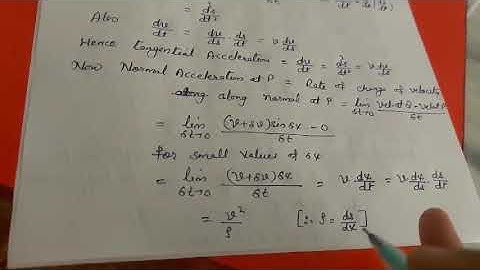 = ds/dt
Also dv/dt = dv/ds · ds/dt = v dv/ds
Hence Tangential Acceleration = dv/dt = d²s/dt² = v dv/ds
Now Normal Acceleration at P = Rate of change of velocity
along normal at P = lim δt→0 velat Q - velat P / δt
= lim δt→0 (v+δv) sin δψ - 0 / δt
for small values of δψ
= lim δt→0 (v+δv) δψ / δt = v · dψ/dt = v dψ/ds · ds/dt
= v²/ρ [∵ ρ = ds/dψ]